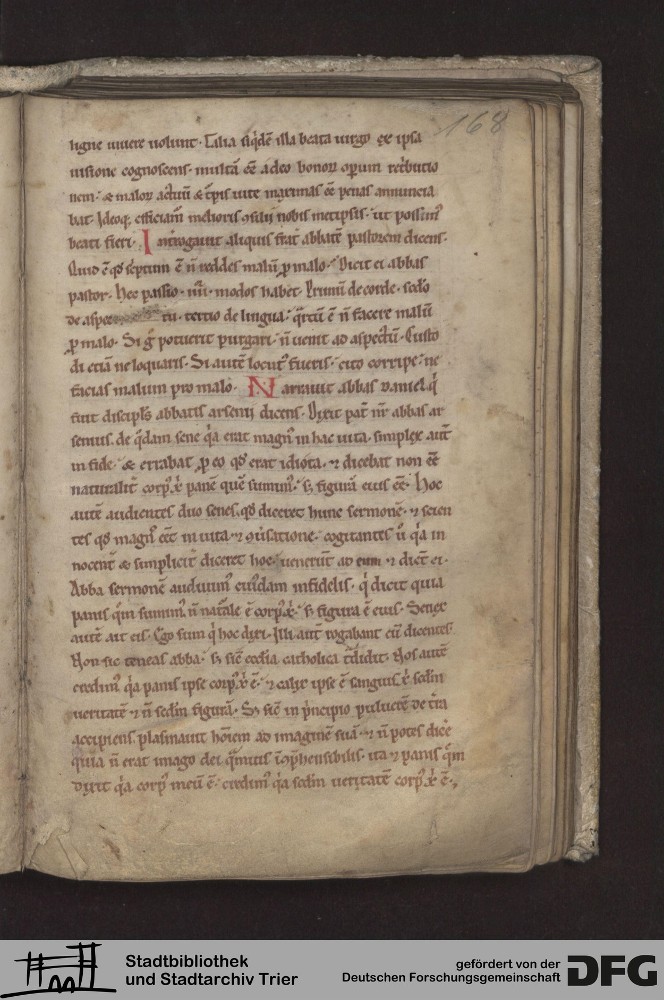 168
ligne uiuere uoluit. Talia siq̄dē illa beata uirgo ex ipsa
uisione cognoscens. multā eē adeo bonoꝝ oꝑum retˀbutio
nem. & maloꝝ actuū & tˀpis uite maximas eē penas annuncia
bat. Ideoq; efficiam̄ melioris ꝯsilii nobis metipsis. ut possim᷒
beati fieri. Interogauit aliquis frat̄ abbatē pastorem dicens.
Quid ē qđ sc̄ptum ē n̄ reddes malū ꝓ malo. Dicit ei abbas
pastor. Hec passio .iiii. modos habet. Primū de corde. scđo
de aspec tu. tertio de lingua. q̄rtū ē n̄ facere malū
ꝓ malo. Si gͦ potuerit purgari. n̄ uenit ad aspectū. Custo
di etiā ne loquaris. Si autē locut᷒ fueris. cito corripe. ne
facias malum pro malo. Narrauit abbas daniel q̄
fuit discipl̄s abbatis arsenii dicens. Dixit pat̄ nr̄ abbas ar
senius. de q̄dam sene q̄a erat magn᷒ in hac uita. simplex aut̄
in fide. & errabat ꝓ eo qđ erat idiota. ⁊ dicebat non eē
naturalit̄ corp᷒ xp̄i panē quē sumim᷒. s; figurā eius eē. Hoc
autē audientes duo senes. qđ diceret hunc sermonē. ⁊ scien
tes qđ magn᷒ eēt in uita ⁊ ꝯuˀsatione. cogitantes ū q̄a in
nocent̄ & simplicit̄ diceret hoc. uenerūt ad eum ⁊ dict̄ ei.
Abba sermonē audiuim᷒ cui᷒dam infidelis. q̄ dicit quia
panis quē sumim᷒ n̄ nat̄ale ē corp᷒ xp̄i. s; figura ē eius. Senex
autē ait eis. Ego sum q̄ hoc dixi. Illi aut̄ rogabant eū dicentes.
Non sic teneas abba. s; sic̄ ecclīa catholica tˀdidit. Nos autē
credim᷒ q̄a panis ipse corp᷒ xp̄i ē. ⁊ calix ipse ē sanguis xp̄i scđm
ueritatē ⁊ n̄ scđm figurā. S; sic̄ in pˀncipio puluerē de tˀra
accipiens. plasmauit hoīem ad imaginē suā. ⁊ n̄ potes dicē
quia n̄ erat imago dei q̄muis īcōp̄hensibilis. ita ⁊ panis quē
dixit q̄a corp᷒ meū ē. credim᷒ q̄a scđm ueritatē corp᷒ xp̄i ē.
Stadtbibliothek
und Stadtarchiv Trier
gefördert von der
Deutschen Forschungsgemeinschaft
DFG